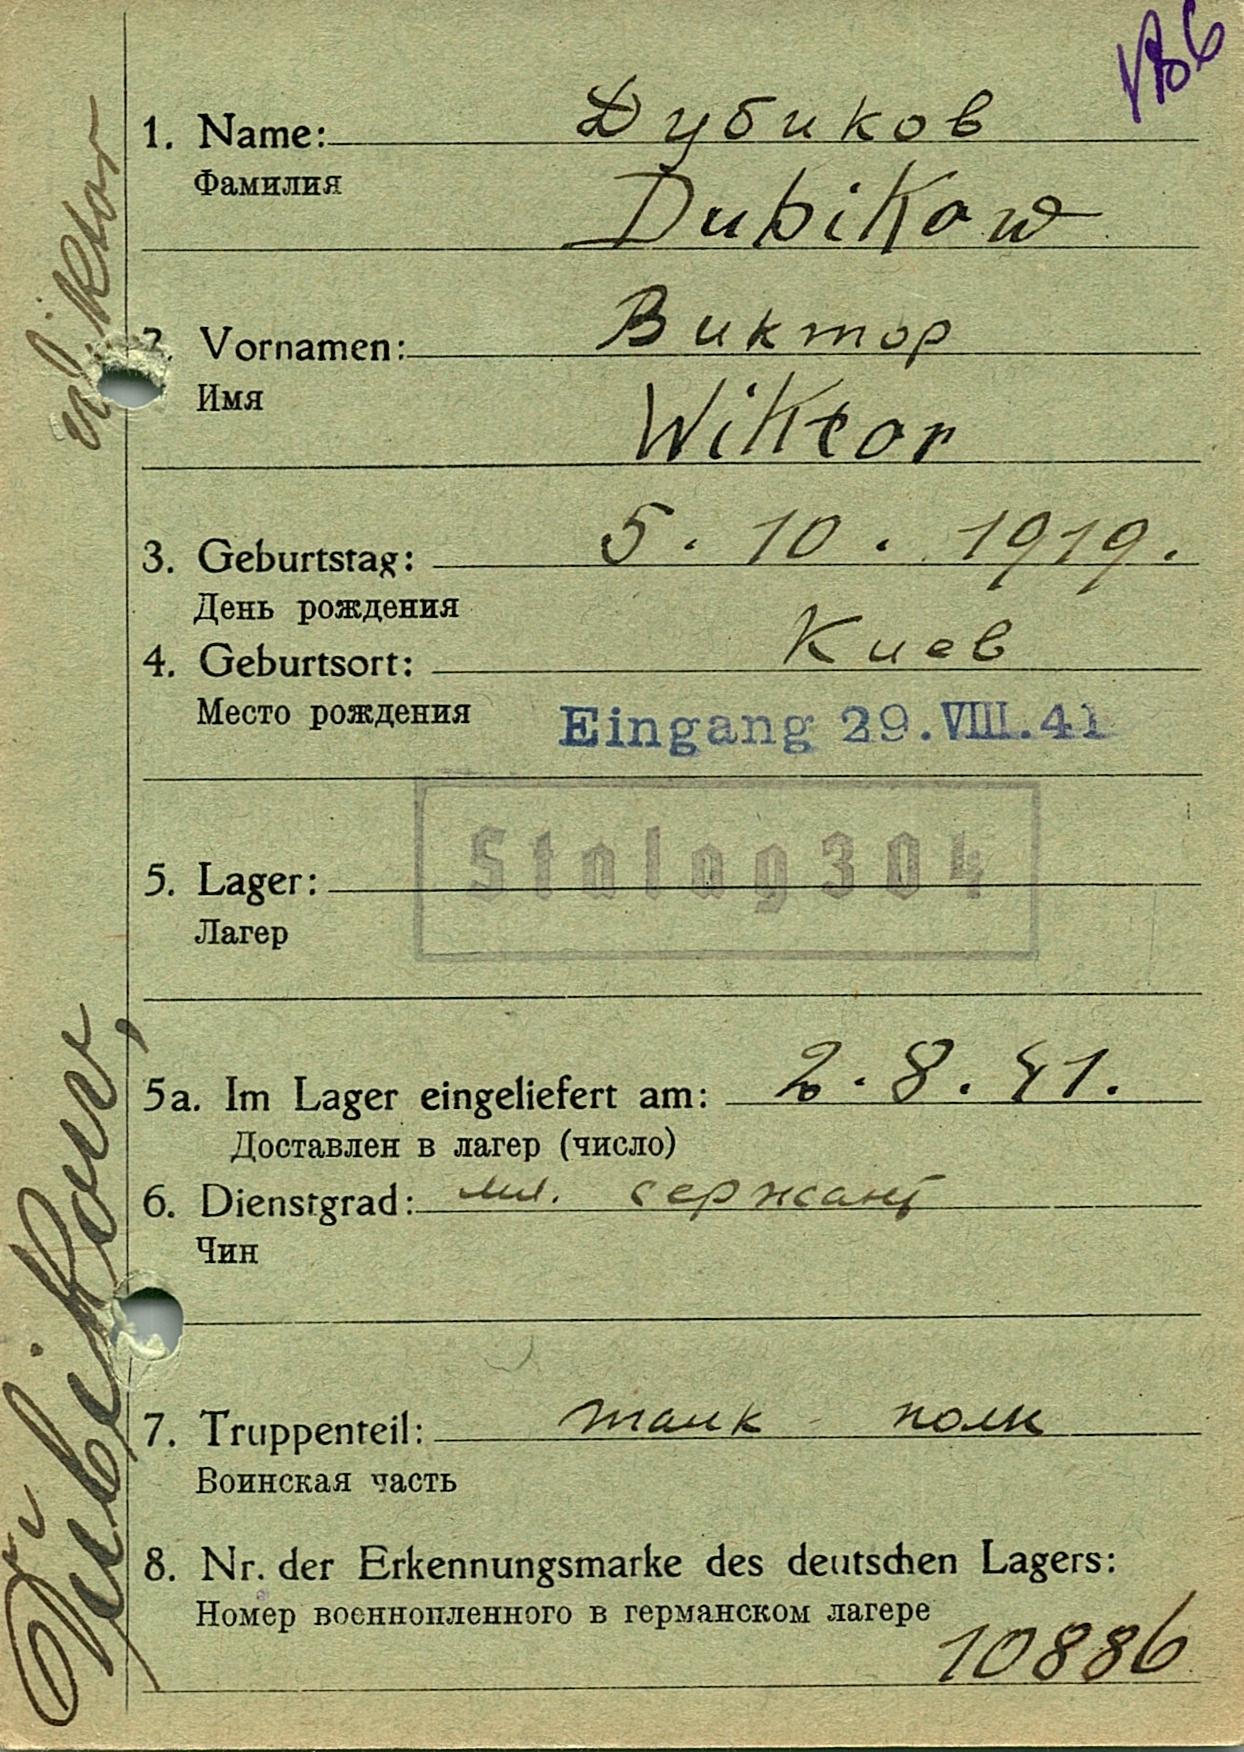 1. Name: Дубиков
Фамилия
Dubikow
2. Vornamen: Виктор
Имя
Wiktor
3. Geburtstag: 5. 10. 1919.
День рождения
4. Geburtsort: Киев
Место рождения
Eingang 29.VIII.41
Stalag 304
5. Lager:
Лагер
5a. Im Lager eingeliefert am: 2. 8. 41.
Доставлен в лагер (число)
6. Dienstgrad: мл. сержант
Чин
7. Truppenteil: танк - полк
Воинская часть
8. Nr. der Erkennungsmarke des deutschen Lagers:
Номер военнопленного в германском лагере
10886
Dubikow, Wiktor